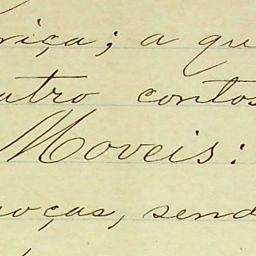 riça; a qu
atro contos
Moveis:
oças, send